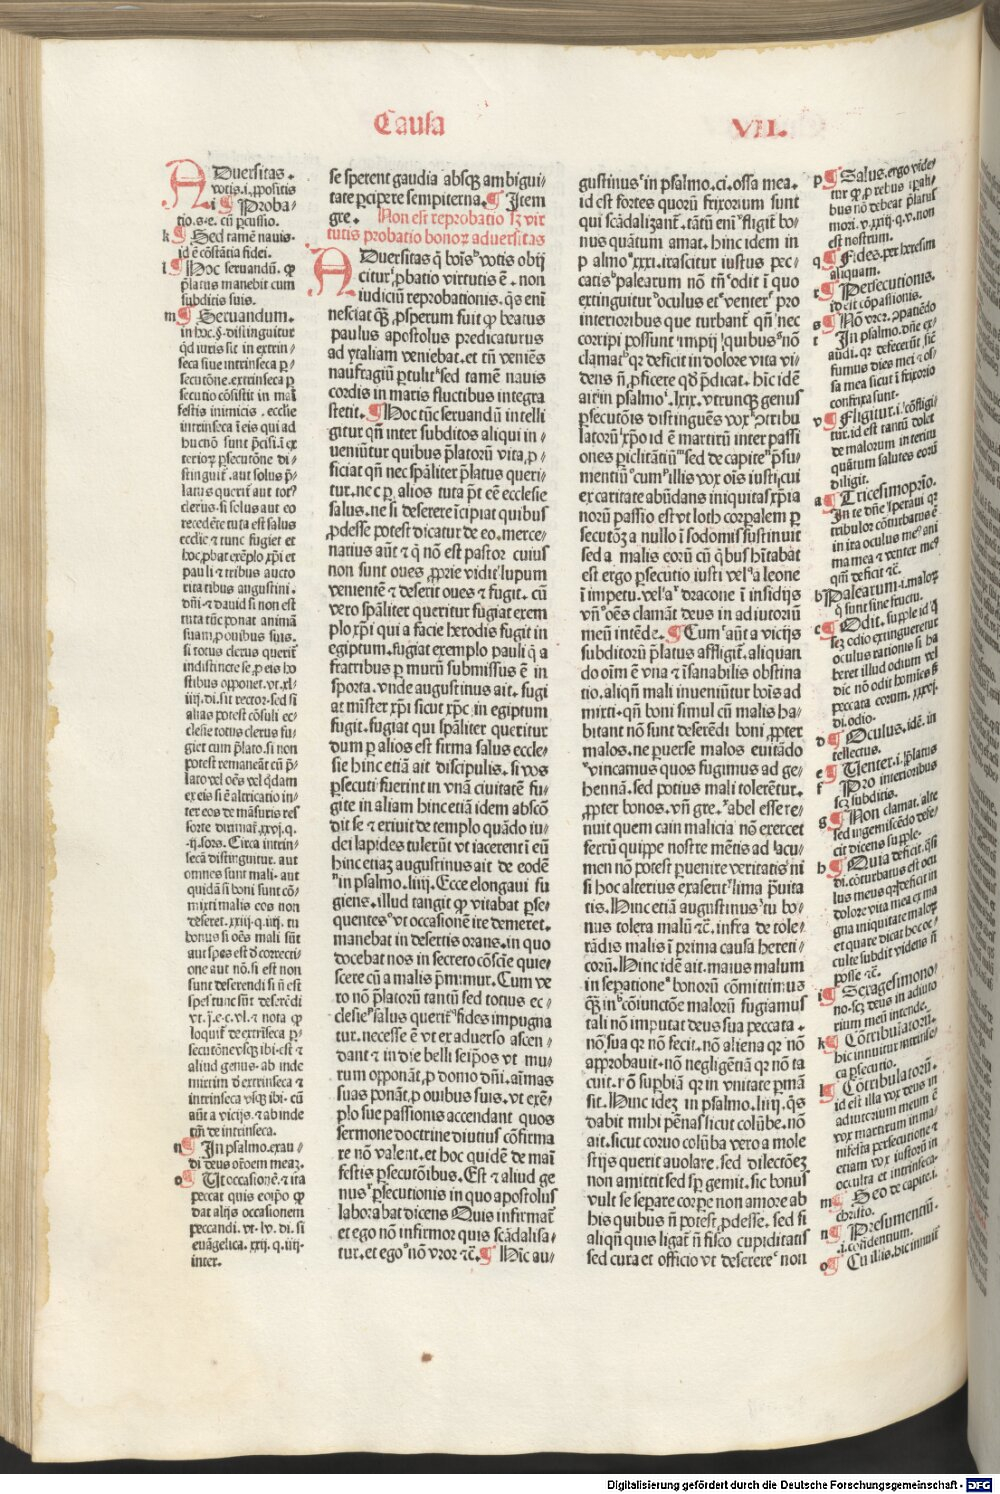 Causa
VII.
ADuersitas.
votis.i.ꝓpositis
i ¶ Proba-
tio.s.e. cū ꝑcussio.
k¶ Sed tamē nauis.
id ē cōstātia fidei.
l¶ Hoc seruandū. ꝙ
p̄latus manebit cum
subditis suis.
m¶ Seruandum.
in hoc.§.distinguitur
qd iuris sit in extrin/
seca siue intrinseca ꝑ/
secutōne.extrinseca ꝑ
secutio cōsistit in mai
festis inimicis. ecclie
intrinseca ī eis qui ad
huc nō sunt p̄cisi.ī ex
teriorꝭ ꝑsecutōne di/
stinguit̄.aut solus p̄/
latus querit̄ aut totꝰ
clerus.si solus aut eo
recedēte tuta est salus
ecclīe ⁊ tunc fugiet et
hoc ꝓbat exēplo xp̄i et
pauli ⁊ tribus aucto
ritatibus augustini.
dn̄i ⁊ dauid si non est
tuta tūc ponat animā
suam ꝓ ouibus suis.
si totus clerus querit̄
indistincte se ꝓ eis ho
stibus opponet.vt.xl/
iij.di.sit rector.sed si
alias potest cōsuli ec/
clesie totus clerus fu/
giet cum p̄lato.si non
potest remaneāt cū p̄/
lato vel oēs vel q̄dam
ex eis si ē altricatio in/
ter eos de māsuris res
sorte dirimat̄.xxvj.q.
.ij.sors. Circa intrin/
secā distinguitur. aut
omnes sunt mali. aut
quidā si boni sunt cō/
mixti malis eos non
deseret.xxiij.q.iiij. tu
bonus si oēs mali sūt
aut spes est d̄ correcti/
one aut nō.si est non
sunt deserendi si n̄ est
spes tunc sūt deserēdi
vt.j.e.c.vl. ⁊ nota ꝙ
loquit̄ de extrīseca ꝑ/
secutōne vsqꝫ ibi.est ⁊
aliud genus. ab inde
mixtim d̄ extrinseca ⁊
intrinseca vsqꝫ ibi. cū
aūt a vicijs. ⁊ ab inde
tm̄ de intrinseca.
n¶ In psalmo.exau/
di deus orōem meaꝫ.
o¶ Vt occasionē. ⁊ ita
peccat quis eoip̄o ꝙ
dat alijs occasionem
peccandi. vt. lv. di. si
euāgelica. xxij. q. iiij.
inter.
se sperent gaudia absqꝫ ambigui/
tate ꝑcipere sempiterna. ¶ Item
gre. Non est reprobatio sꝫ vir
tutis probatio bonoꝝ aduersitas
ADuersitas q̄ boīs votis obij
citur ꝓbatio virtutis ē. non
iudiciū reprobationis. q̄s enī
nesciat qꝫ ꝓsperum fuit ꝙ beatus
paulus apostolus predicaturus
ad ytaliam veniebat. et tn̄ veniēs
naufragiū ꝑtulit sed tamē nauis
cordis in maris fluctibus integra
stetit. ¶ Hoc tūc seruandū intelli
gitur qn̄ inter subditos aliqui in/
ueniūtur quibus p̄latorū vita ꝓ/
ficiat qn̄ nec spāliter p̄latus queri/
tur. nec ꝑ alios tuta p̄t eē ecclesie
salus. ne si deserere īcipiat quibus
ꝓdesse potest dicatur de eo. merce/
narius aūt ⁊ q̄ nō est pastor cuius
non sunt oues ꝓprie vidit lupum
venientē ⁊ deserit oues ⁊ fugit. cū
vero spāliter queritur fugiat exem
plo xp̄i qui a facie herodis fugit in
egiptum. fugiat exemplo pauli q̄ a
fratribus ꝑ murū submissus ē in
sporta. vnde augustinus ait. fugi
at mīster xp̄i sicut xp̄c in egiptum
fugit. fugiat qui spāliter queritur
dum ꝑ alios est firma salus eccle/
sie hinc etiā ait discipulis. si vos
ꝑsecuti fuerint in vnā ciuitatē fu/
gite in aliam hinc etiā idem abscō
dit se ⁊ exiuit de templo quādo iu/
dei lapides tulerūt vt iacerent ī eū
hinc etiaꝫ augustinus ait de eodē
in psalmo.liiij. Ecce elongaui fu
giens. illud tangit ꝙ vitabat ꝑse/
quentes vt occasionē ire demeret.
manebat in desertis orans. in quo
docebat nos in secreto cōscīe quie/
scere cū a malis p̄mimur. Cum ve
ro nō p̄latorū tantū sed totius ec/
clesie salus querit̄ fides impugna
tur. necesse ē vt ex aduerso ascen/
dant ⁊ in die belli seip̄os vt mu/
rum opponāt ꝓ domo dn̄i. aīmas
suas ponāt ꝓ ouibus suis. vt exē/
plo sue passionis accendant quos
sermone doctrine diutius cōfirma
re nō valent. et hoc quidē de mai
festis ꝑsecutōibus. Est ⁊ aliud ge
nus ꝑsecutionis in quo apostolus
laborabat dicens Quis infirmat̄
et ego nō infirmor quis scādalisa/
tur. et ego nō vror ⁊c̄. ¶ Hīc au/
gustinus in psalmo.ci. ossa mea.
id est fortes quorū frixorium sunt
qui scādalizant̄. tātū enī fligit bo/
nus quātum amat. hinc idem in
psalmo.xxxi. irascitur iustus pec/
catis palearum nō tn̄ odit ī quo
extinguitur oculus et venter pro
interioribus que turbant̄ qn̄ nec
corripi possunt impij quibus nō
clamat qꝛ deficit in dolore vita vi/
dens n̄ ꝓficere qd̄ p̄dicat. hīc idē
ait in psalmo.lxix. vtrunqꝫ genus
ꝑsecutōis distinguēs vox ꝯtribu
latorū xp̄o id ē martirū inter passi
ones piclitātiū sed de capite p̄su/
mentiū cum illis vox oīs iusti cui
ex caritate abūdans iniquitas xp̄ia
norū passio est vt loth corpalem ꝑ
secutōꝫ a nullo ī sodomis sustinuit
sed a malis eorū cū q̄bus hītabat
est ergo ꝑsecutio iusti vel a leone
ī impetu. vel a dracone ī insidijs
vn̄ oēs clamāt deus in adiutoriū
meū intēde. ¶ Cum aūt a vicijs
subditorū p̄latus affligit̄. aliquan
do oīm ē vna ⁊ īsanabilis obstina
tio. aliqn̄ mali inueniūtur boīs ad
mixti. qn̄ boni simul cū malis ha/
bitant nō sunt deserēdi boni ꝓpter
malos. ne ꝑuerse malos euitādo
vincamus quos fugimus ad ge/
hennā. sed potius mali tolerētur.
ꝓpter bonos. vn̄ gre. abel esse re/
nuit quem cain malicia nō exercet
ferrū quippe nostre mētis ad acu/
men nō potest ꝑuenire veritatis ni
si hoc alterius exaserit lima p̄uita
tis. Hinc etiā augustinus tu bo/
nus tolera malū ⁊c̄. infra de tole/
rādis malis ī prima causa hereti/
corū. Hinc idē ait. maius malum
in sepatione bonorū cōmittimus
qꝫ in cōiunctōe malorū fugiamus
tali nō imputat deus sua peccata.
nō sua qꝛ nō fecit. nō aliena qꝛ nō
approbauit. nō negligētiā qꝛ nō ta
cuit. nō supbiā qꝛ in vnitate ꝑmā
sit. Hinc ideꝫ in psalmo.liiij. q̄s
dabit mihi pēnas sicut colūbe. nō
ait. sicut coruo colūba vero a mole
stijs querit auolare. sed dilectōeꝫ
non amittit sed sp̄ gemit. sic bonus
vult se separe corpe non amore ab
his quibus n̄ potest ꝓdesse. sed si
aliqn̄ quis ligat̄ n̄ fisco cupiditatis
sed cura et officio vt deserere non
p¶ Salus.ergo vide/
tur ꝙ ꝓ rebus ip̄ali/
bus nō debeat p̄latus
mori. v.xxiij.q.v.non
est nostrum.
q¶ Fides.per heresim
aliquam.
r¶ Persecutionis.
id ē cōpassionis.
s¶ Nō vror. ꝯpatiēdo
t In psalmo.dn̄e ex/
audi. qꝛ defecerūt sic̄
fumus dies mei ⁊ os/
sa mea sicut ī frixorio
confrixa sunt.
v¶ Fligitur.i.cōfligi/
tur.id est tantū dolet
de malorum interitu
quātum salutes eorū
diligit.
a¶ Tricesimoprīo.
In te dn̄e speraui qꝛ
tribulor cōturbatus ē
in ira oculus meꝰ ani
ma mea ⁊ venter meꝰ
qm̄ deficit ⁊c̄.
b Palearum.i.maloꝝ
q̄ sunt sine fructu.
c¶ Odit. supple id q̄
seꝫ odio extingueretur
oculus rationis si ha
beret illud odium vel
dic nō odit homīes sꝫ
peccata eorum.xxxvj.
di.odio.
d¶ Oculus.idē.in
tellectus.
e¶ Venter.i.p̄latus
f Pro interioribus
scꝫ subditis.
g¶ Non clamat.alte
sed ingemiscēdo defe/
cit dicens supple.
h¶ Quia deficit.q̄si
di.cōturbatus est ocu
lus meus qꝛ deficit in
dolore vita mea ex ma
gna iniquitate maloꝝ
et quare dicat hoc oc/
culte subdit videns n̄
posse ⁊c̄.
i¶ Sexagesimono/
no.scꝫ deus in adiuto
rium meū intende.
k¶ Cōtribulatorū.
hic innuitur intrinse/
ca ꝑsecutio.
l¶ Cōtribulatorū.
id est illa vox deus in
adiutorium meum ē
vox martirum in ma/
nifesta persecutione ⁊
etiam vox iustorū in
occulta et intrinseca.
m¶ Sed de capite.i.
christo.
n¶ Presumentiū.
.i.cōfidentium.
o¶ Cū illis.hic innuit̄
Digitalisierung gefördert durch die Deutsche Forschungsgemeinschaft - DFG